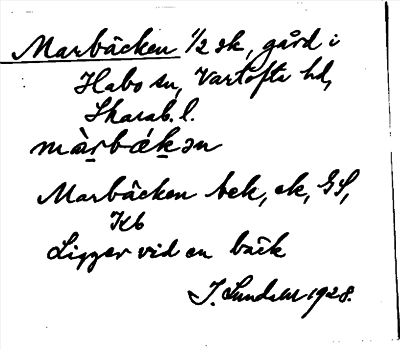 Marbäcken 1/2 sk, gård i
Habo sn, Vartofta hd,
Skarab. l.
màrbä́kən
Marbäcken bek, ek, GS,
Kb
Ligger vid en bäck
J. Sundell 1928.